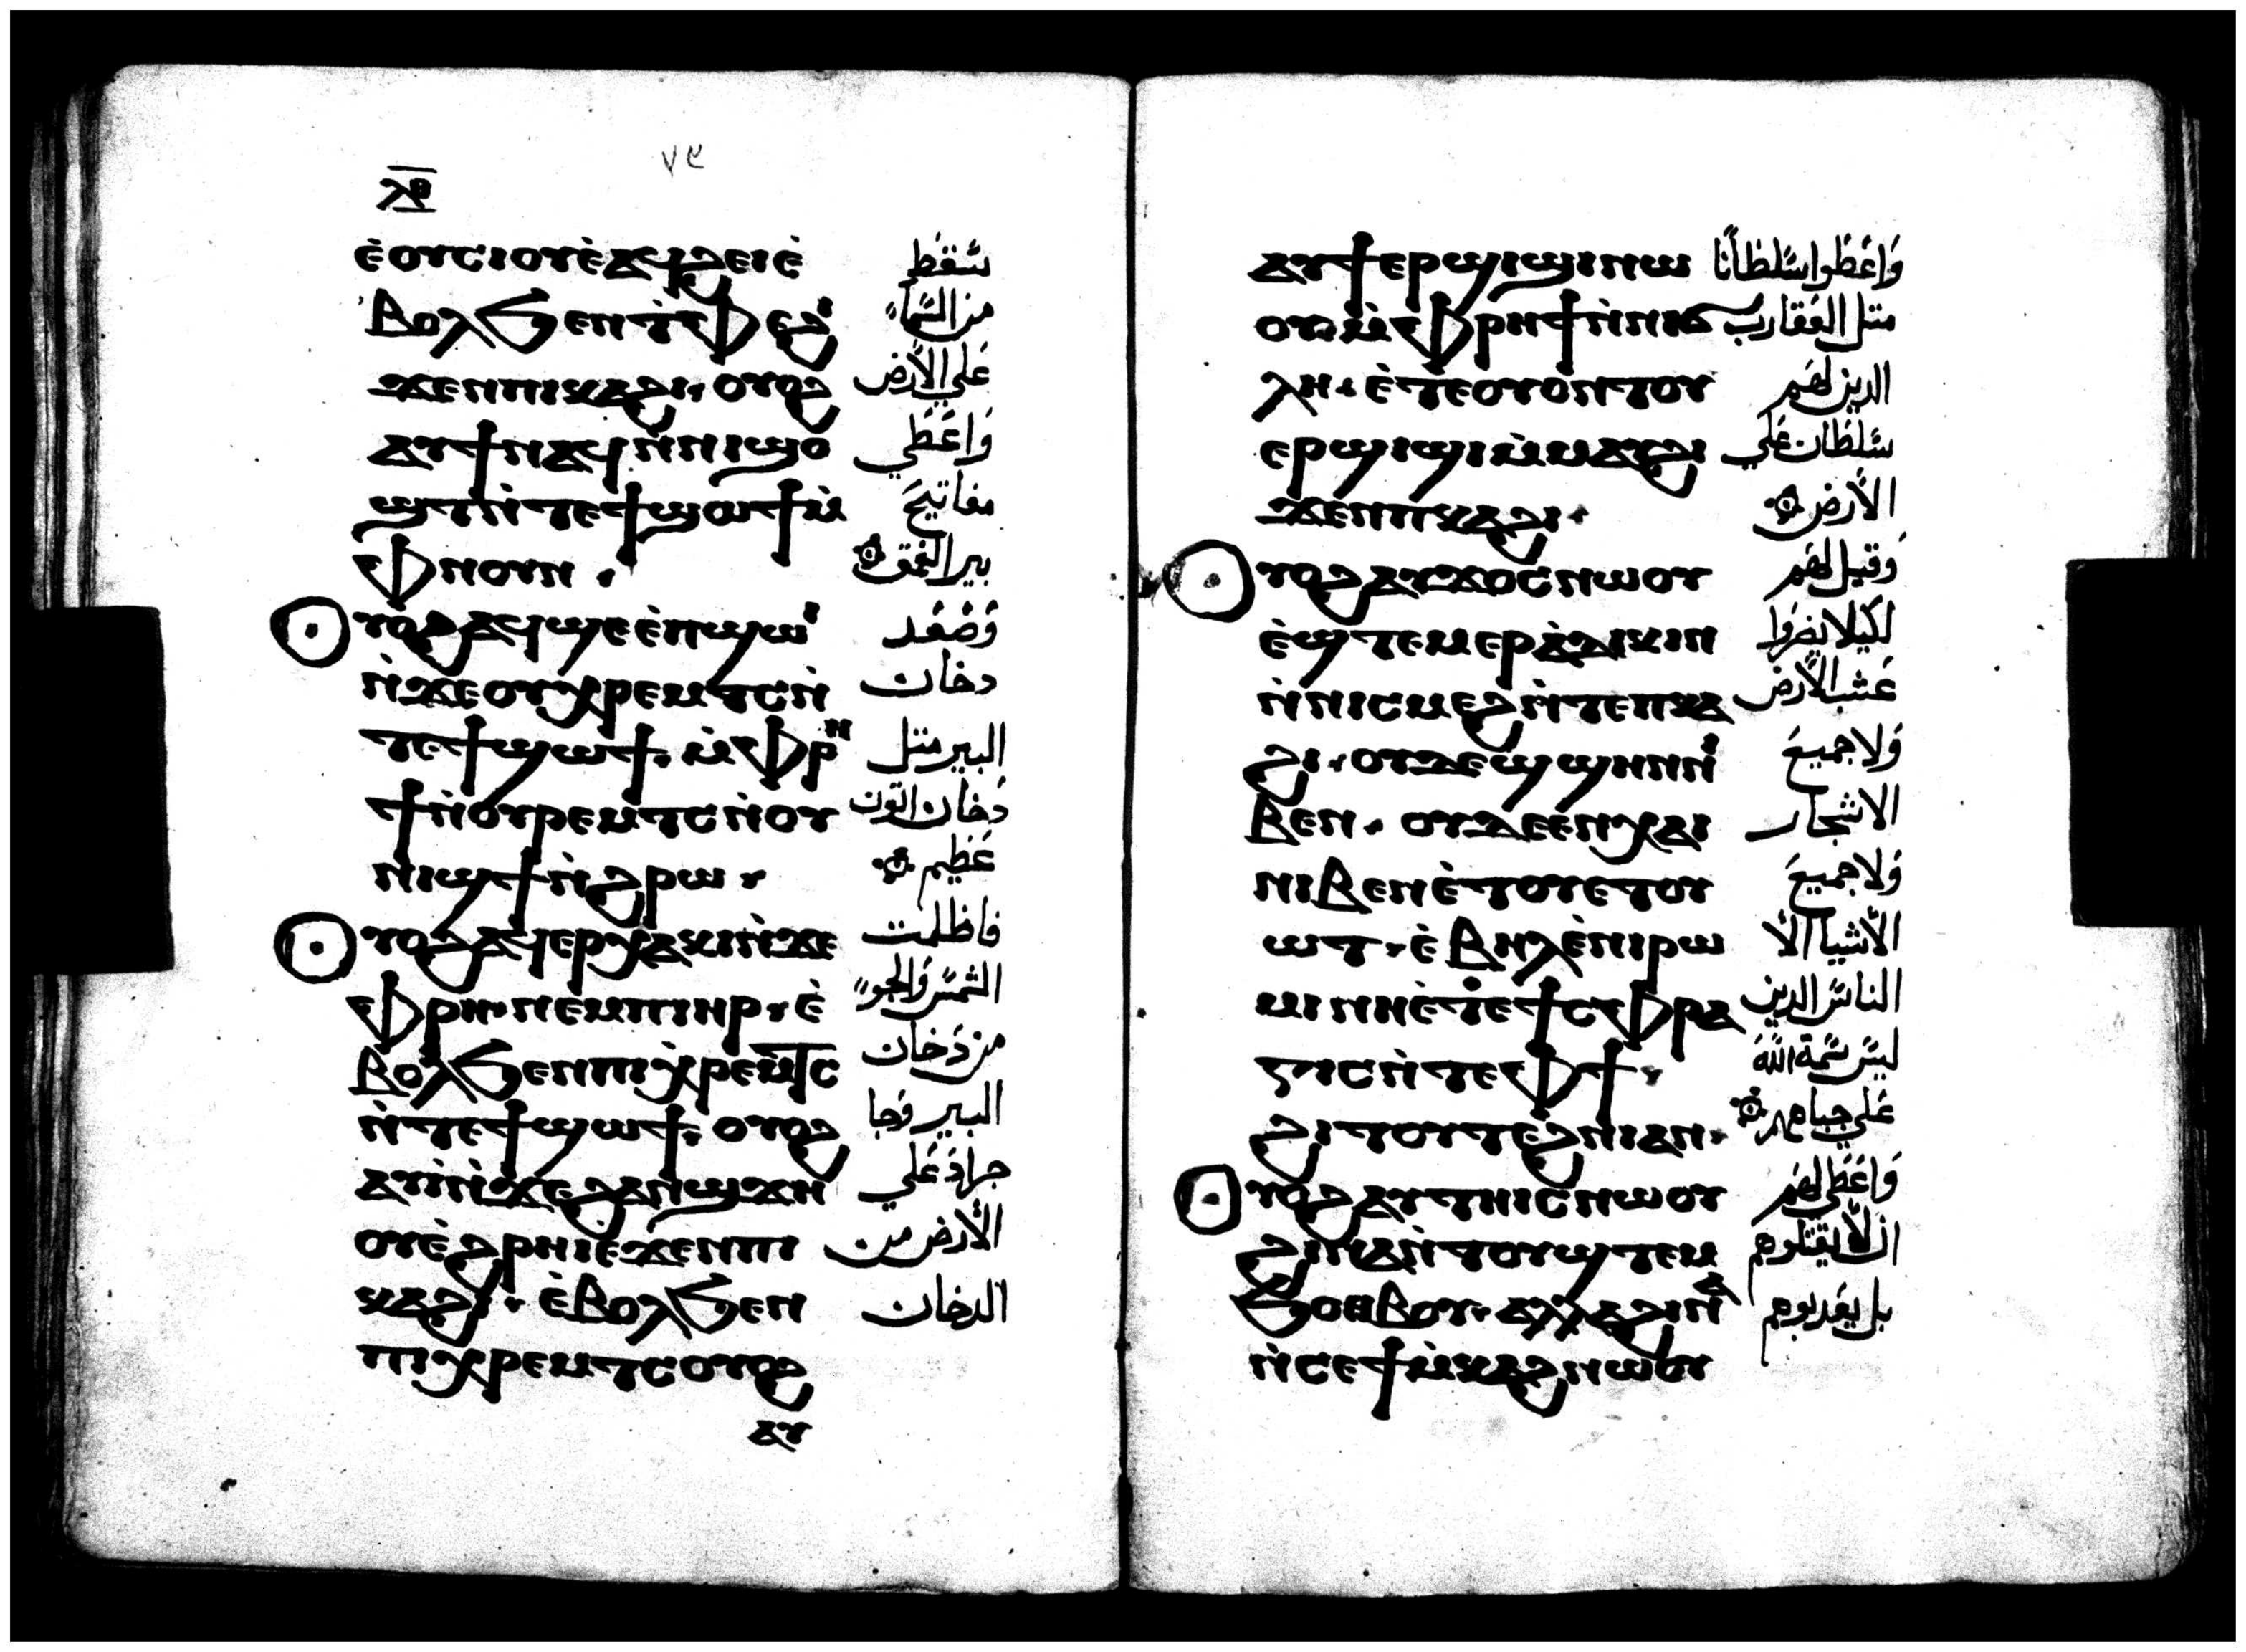 ٧٩
ⲗⲑ
ⲉ̀ⲟⲩⲥⲓⲟⲩⲉ̀ⲁϥϩⲉⲓⲉ̀
ⲃⲟⲗϧⲉⲛⲧ̀ⲫⲉ
ϫⲉⲛⲡⲓⲕⲁϩⲓ, ⲟⲩⲟϩ
ⲁⲩϯⲛⲁϥⲛ̀ⲛⲓϣⲟ
ϣⲧⲛ̀ⲧⲉϯϣⲱϯⲙ̀
ⲫⲛⲟⲩⲛ ,
ⲟⲩⲟϩⲁϥϣⲉⲉ̀ⲡϣⲱⲓ
ⲛ̀ϫⲉⲟⲩⲭⲣⲉⲙⲧⲥⲛ̀
ⲧⲉϯϣⲱϯ. ⲙ̀ⲫⲣⲏ
ϯⲛ̀ⲟⲩⲣⲉⲙⲧⲥⲛ̀ⲟⲩ
ⲛⲓϣϯⲛ̀ϩⲣⲱ ,
ⲟⲩⲟϩⲁϥⲉⲣⲭⲁⲕⲓⲛ̀ϫⲉ
ⲫⲣⲏ. ⲛⲉⲙⲡⲓⲏⲣ , ⲉ̀
ⲃⲟⲗϧⲉⲛⲡⲓⲭⲣⲉⲙⲧⲥ
ⲛ̀ⲧⲉϯϣⲱϯ. ⲟⲩⲟϩ
ⲁⲩⲓ̀ⲛ̀ϫⲉϩⲁⲛϣϫⲏ
ⲟⲩⲉ̀ϩⲣⲏⲓⲉϫⲉⲛⲡⲓ
ⲕⲁϩⲓ , ⲉ̀ⲃⲟⲗϧⲉⲛ
ⲡⲓⲭⲣⲉⲙⲧⲥⲟⲩⲟϩ
ⲁⲩ
سَقط
من السَّماء
عَلي الأرض
وَاعَطي
مفاتيحَ
بير العُمق
وَصَعَد
دخان
البير مثل
دَخان اتون
عَظيم
فاظلمت
الشمسَ وَالجو
من دَخان
البير وَجا
جرادَ عَلي
الأرض من
الدخان
ⲁⲩϯⲉⲣϣⲓϣⲓⲛⲱ
ⲟⲩⲙ̀ⲫⲣⲏϯⲛ̀ⲛⲓϭ
ⲗⲏ. ⲉ̀ⲧⲉⲟⲩⲟⲛⲧⲟⲩ
ⲉⲣϣⲓϣⲓⲙ̀ⲙⲁⲩϩⲓ
ϫⲉⲛⲡⲕⲁϩⲓ .
ⲟⲩⲟϩⲁⲩϫⲟⲥⲛⲱⲟⲩ
ⲉ̀ϣⲧⲉⲙⲉⲣⲁ̀ⲇⲓⲕⲓⲛ
ⲛ̀ⲛⲓⲥⲙⲉϩⲛ̀ⲧⲉⲡⲕⲁ
ϩⲓ , ⲟⲩⲇⲉϣϣⲏⲛⲛⲓ
ⲃⲉⲛ . ⲟⲩⲇⲉⲉⲛⲭⲁⲓ
ⲛⲓⲃⲉⲛⲉ̀ⲧⲟⲩⲉⲧⲟⲩ
ⲱⲧ , ⲉ̀ⲃⲏⲗⲉ̀ⲛⲓⲣⲱ
ⲙⲓⲛⲏⲉ̀ⲧⲉϯⲥⲫⲣⲁ
ⲅⲓⲥⲛ̀ⲧⲉⲫϯ ,
ϩⲓⲧⲟⲩⲧⲉϩⲛⲓⲁⲛ.
ⲟⲩⲟϩⲁⲩⲧⲏⲓⲥⲛⲱⲟⲩ
ϩⲓⲛⲁⲛ̀ⲧⲟⲩϣⲧⲉⲙ
ϧⲟⲑⲃⲟⲩ. ⲁⲗⲗⲁϩⲓⲛⲁ
ⲛ̀ⲥⲉϯⲙ̀ⲕⲁϩⲛⲱⲟⲩ
وَاعَطوا سَلطانًا
مثل العَقارب
الدين لهَم
سَلطان عَلي
الأرض
وَقيل لهَم
لكيلا يضرَوا
عَشب الأرض
وَلا جميعَ
الاشجار
وَلا جميعَ
الأشيا الأ
الناسَ الدين
ليسَ سَمة اللهَ
عَلي جباههم
وَاعَطي لهَم
ان لا يقتلوهم
بل يعَدبوهم